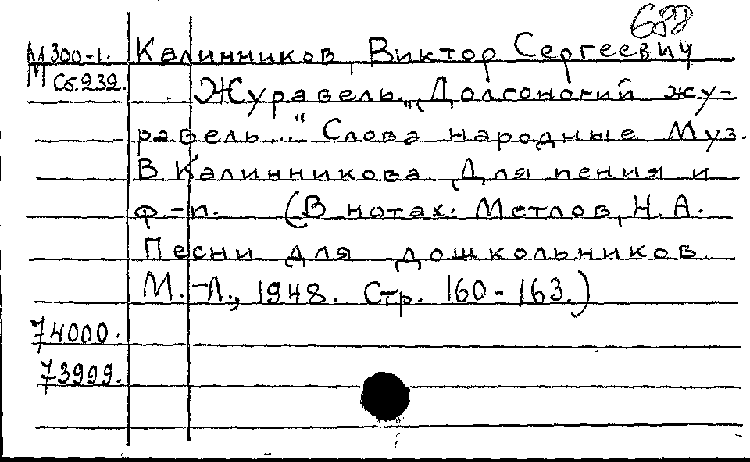 688
М300-1. Калинников, Виктор Сергеевич
М Сб.939. Журавель. „Долгоногий жу-
равель..." Слова народные Муз.
В Калинникова Для пения и
ф-п. (В нотах: Метлов, Н. А.
Песни для дошкольников.
М.-Л., 1948. Стр. 160-163.)
74000.
73999.